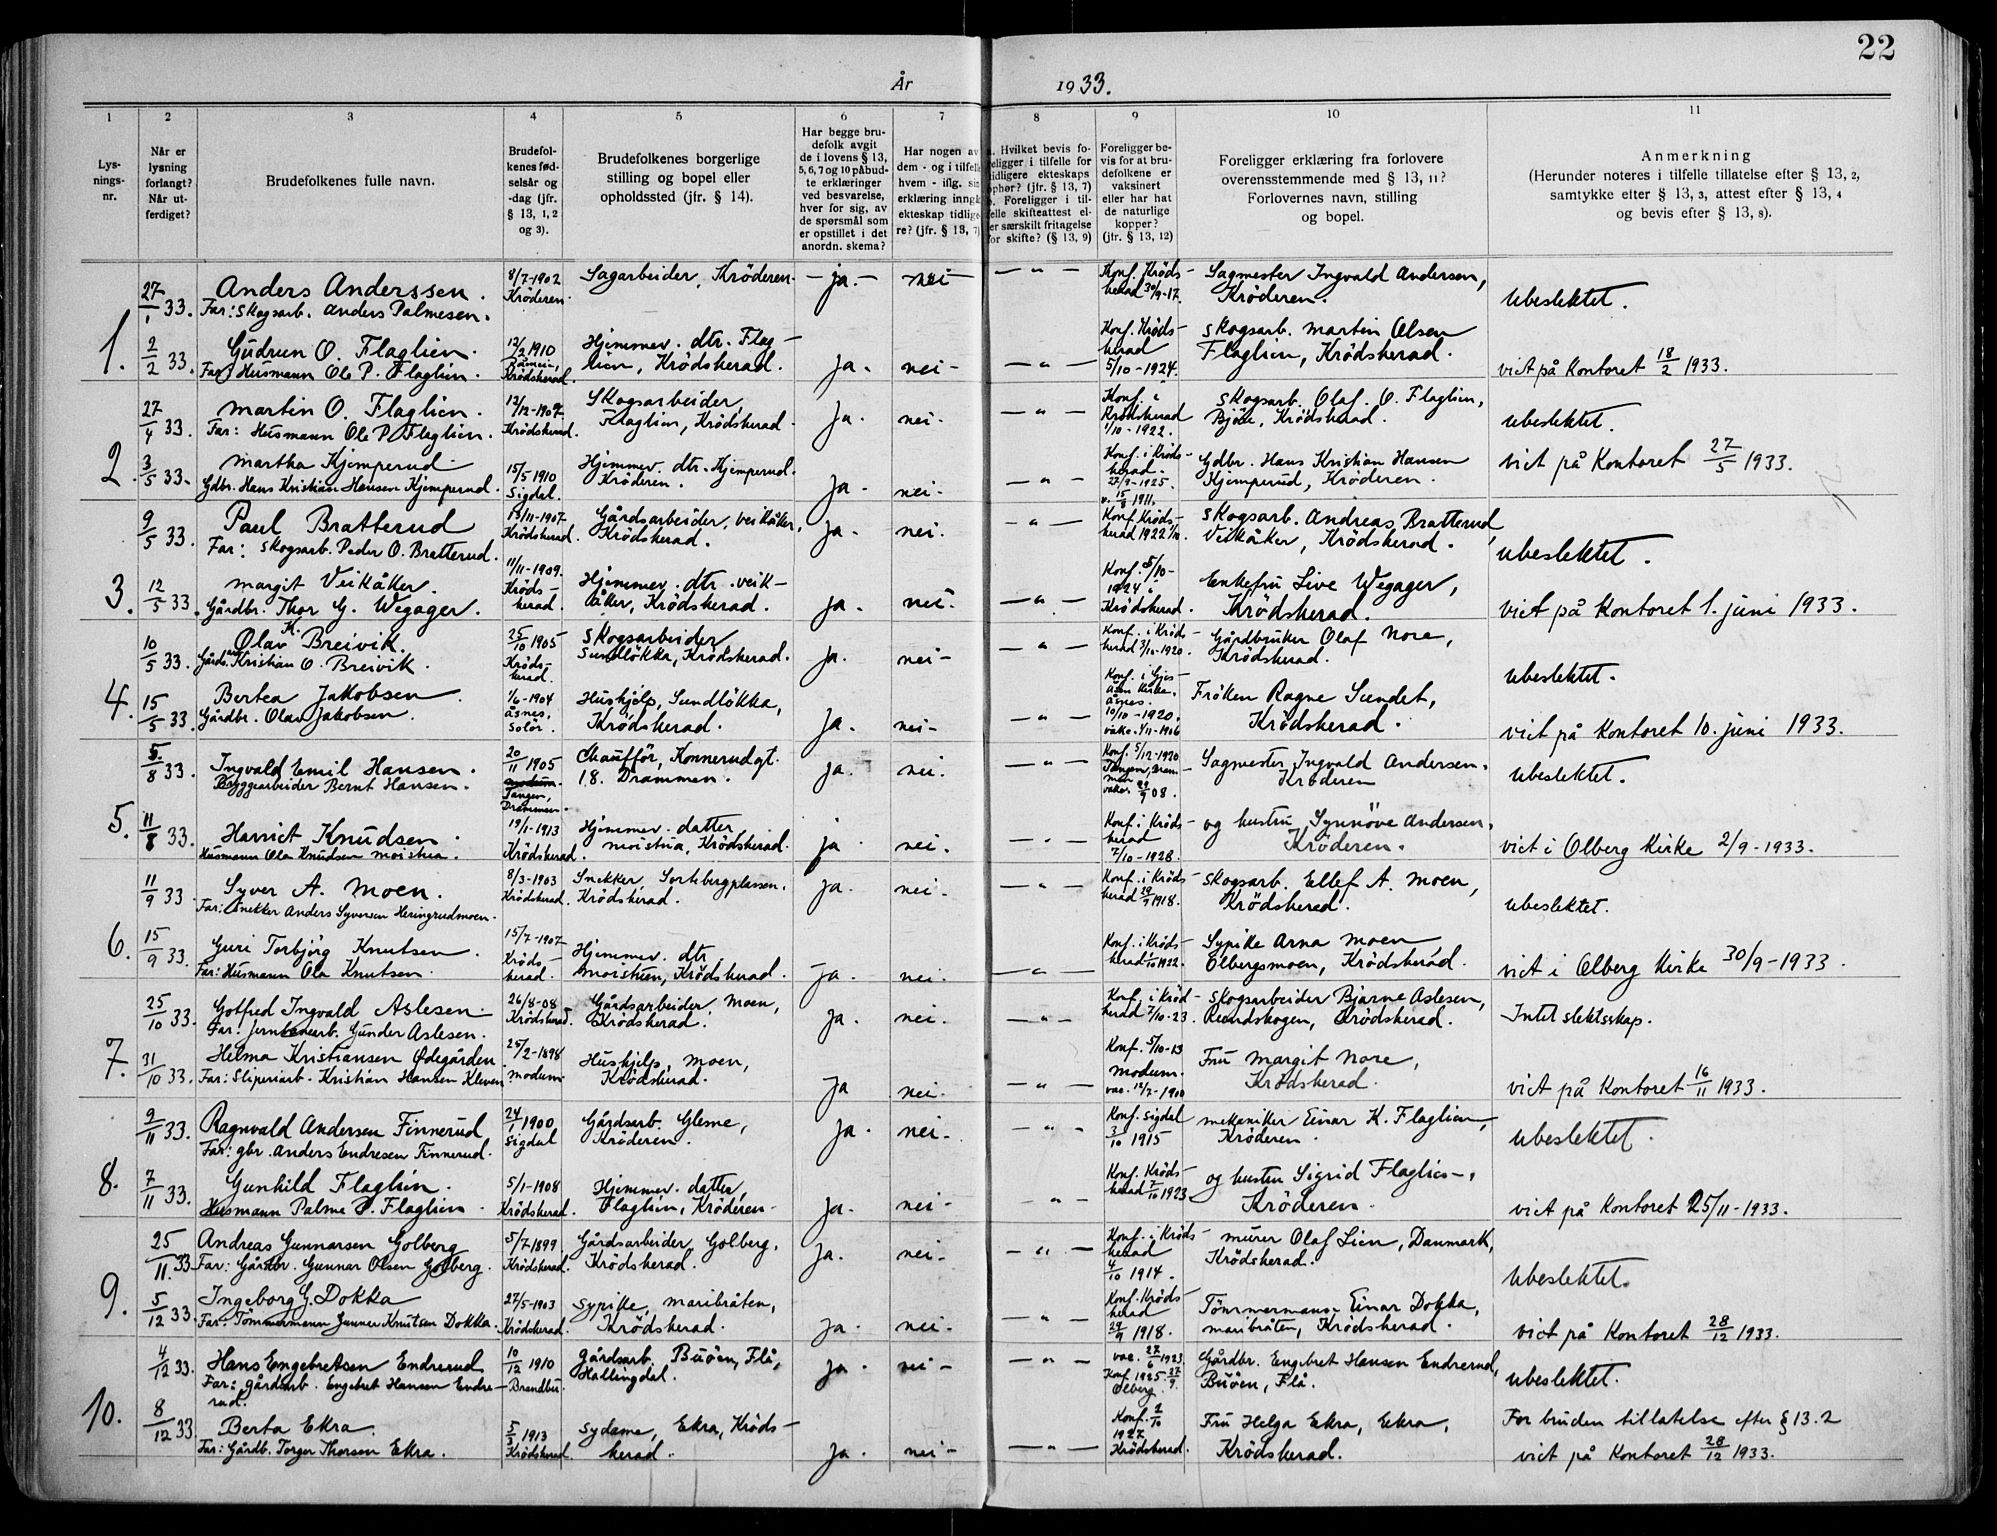 22
År 1933.
1 2 3 4 5 6 7 8 9 10 11
Lys-
nings-
nr.
Når er
lysning
forlangt?
Når ut-
ferdiget?
Brudefolkenes fulle navn.
Brudefol-
kenes fød-
selsår og
-dag (jfr.
§ 13, 1, 2
og 3).
Brudefolkenes borgerlige
stilling og bopel eller
opholdssted (jfr. § 14).
Har begge bru-
defolk avgit
de i lovens § 13,
5, 6, 7 og 10 påbud-
te erklæringer
ved besvarelse,
hver for sig, av
de spørsmål som
er opstillet i det
anordn. skema?
Har nogen av
dem - og i tilfelle
hvem - iflg. sin
erklæring inngå
ekteskap tidlige-
re? (jfr. § 13, 7)
a. Hvilket bevis fo-
religger i tilfelle for
tidligere ekteskaps
ophør? (jfr. § 13, 7)
b. Foreligger i til-
felle skifteattest el-
er særskilt fritagelse
for skifte? (§ 13, 9)
Foreligger be-
vis for at bru-
defolkene er
vaksinert
eller har hat
de naturlige
kopper?
(jfr. § 13, 12)
Foreligger erklæring fra forlovere
overensstemmende med § 13, 11?
Forlovernes navn, stilling
og bopel.
Anmerkning
(Herunder noteres i tilfelle tillatelse efter § 13, 2,
samtykke efter § 13, 3, attest efter § 13, 4
og bevis efter § 13, 8).
1.
27/1 33.
Anders Anderssen.
Far: Skogsarb. Anders Palmesen.
8/7-1902
Kröderen.
Sagarbeider, Kröderen.
- ja. -
nei -
- " -
Konf. Kröds-
herad 30/9-17.
Sagmester Ingvald Andersen,
Kröderen.
Ubeslektet.
2/2 33.
Gudrun O. Flaglien.
Far: Husmann Ole P. Flaglien.
12/2 1910
Krödsherad.
Hjemmev. dtr. Flag-
lien, Krödsherad.
ja.
nei -
- " -
Konf. Kröds-
herad
5/10-1924.
Skogsarb. Martin Olsen
Flaglien, Krödsherad.
viet på Kontoret 18/2 1933.
2.
27/4 33.
Martin O. Flaglien.
Far: Husmann Ole P. Flaglien.
12/12-1907
Krödsherad.
Skogsarbeider,
Flaglien, Krödsherad.
ja.
nei.
- " -
Konf. i
Krödsherad
1/10-1922.
Skogsarb. Olaf O. Flaglien,
Björe, Krödsherad.
Ubeslektet.
3/5 33.
Martha Kjemperud.
Gdbr. Hans Kristian Hansen Kjemperud.
15/5 1910
Sigdal.
Hjemmev. dtr. Kjemperud.
Kröderen.
ja.
nei.
- " -
Konf. i Kröds-
herad.
27/9-1925.
v. 15/8 1911.
Gdbr. Hans Kristian Hansen
Kjemperud, Kröderen.
viet på Kontoret 27/5 1933.
3.
9/5 33.
Paul Bratterud
Far: Skogsarb. Peder O. Bratterud.
13/11-1907
Krödsherad.
Gårdsarbeider, Veikåker,
Krödsherad.
ja.
nei.
- " -
Konf. Kröds-
herad 1922 1/10.
Skogsarb. Andreas Bratterud,
Veikåker, Krödsherad.
Ubeslektet.
12/5 33.
Margit Veikåker.
Gårdbr. Thor G. Wegager.
11/11-1909.
Kröds-
herad.
Hjemmev. dtr. Veik-
åker, Krödsherad.
ja.
nei.
- " -
Konf. 5/10-
1924.
Krödsherad.
Enkefru Live Wegager,
Krödsherad.
viet på Kontoret 1. juni 1933.
4.
10/5 33.
Olav K. Breivik.
Kristian O. Breivik.
25/10 1905
Kröds-
herad.
Skogsarbeider
Sundløkka, Krödsherad.
ja.
nei -
- " -
Konf. i Kröds-
herad 3/10-1920.
Gårdbruker Olaf Nore,
Krödsherad.
Ubeslektet.
15/5 33.
Bertea Jakobsen
Gårdbr. Olav Jakobsen.
1/6-1904
Åsnes,
Solör.
Hushjelp, Sundlökka,
Krödsherad.
ja.
nei -
- " -
Konf. i Gjes-
åsen Kirke,
Åsnes.
10/10-1920.
vakc. 4/11-1906
Fröken Ragne Sundet,
Krödsherad.
viet på Kontoret 10. juni 1933.
5.
5/8 33.
Ingvald Emil Hansen.
Bryggearbeider Bernt Hansen.
20/11 1905
Tangen,
Drammen.
Chauffør, Konnerudgt.
18. Drammen.
ja.
nei.
- " -
Konf. 5/12-1920
Tangen, Dram-
men
08.
Sagmester Ingvald Andersen.
Kröderen
Ubeslektet.
11/8 33.
Harriet Knudsen.
Husmann Ola Knudsen Moistua.
19/1-1913
Krödsherad.
Hjemmev. datter,
Moistua, Krödsherad.
ja.
nei.
- " -
Konf. i Kröds-
herad
7/10-1928.
og hustru Synnöve Andersen,
Kröderen.
viet i Olberg Kirke 2/9-1933.
6.
11/9 33.
Syver A. Moen.
Far: Snekker Anders Syversen Heringrudmoen.
8/3-1903
Krödsherad.
Snekker, Sortebergplassen,
Krödsherad.
ja.
nei.
- " -
Konf. i Kröds-
herad 1918.
Skogsarb. Ellef A. Moen,
Krödsherad.
Ubeslektet.
15/9 33.
Guri Torbjörg Knutsen.
Far: Husmann Ola Knutsen.
15/7-1907
Kröds-
herad.
Hjemmev. dtr,
Moistuen, Krödsherad.
ja.
nei.
- " -
Konf. i Kröds-
herad 1/10 1922.
Sypike Arna Moen
Olbergsmoen, Krödsherad.
viet i Olberg Kirke 30/9-1933.
7.
25/10 33.
Gotfred Ingvald Aslesen.
Far: Jernbanearb. Gunder Aslesen.
26/8-08
Krödsherad.
Gårdsarbeider, Moen,
Krödsherad.
ja.
nei.
- " -
Konf. i Kröd-
herad 7/10-23.
Skogsarbeider Bjarne Aslesen,
Rundskogen, Krödsherad.
Intet slektsskap.
31/10 33.
Helma Kristiansen Ødegården
Far: Sliperiarb. Kristian Hansen Kleven
25/2-1898
Modum
Hushjelp, Moen,
Krödsherad.
ja
nei.
- " -
Konf. 5/10-13
Modum.
vac. 12/7-1900
Fru Margit Nore,
Krödsherad.
viet på Kontoret 16/11 1933.
8.
2/11 33.
Ragnvald Andersen Finnerud
Far: gbr. Anders Endresen Finnerud.
24/1 1900
Sigdal
Gårdsarb. Glesne,
Kröderen.
ja.
nei.
- " -
Konf. Sigdal
3/10 1915
Mekaniker Einar K. Flaglien,
Kröderen.
Ubeslektet.
7/11 33.
Gunhild Flaglien.
Husmann Palme P. Flaglien.
5/1-1908
Krödsherad.
Hjemmev. datter,
Flaglien, Kröderen.
ja.
nei -
- " -
Konf. Kröds-
herad 7/10 1923
og hustru Sigrid Flaglien,
Kröderen.
viet på Kontoret 25/11-1933.
9.
25/11 33.
Andreas Gunnarsen Golberg
Far: Gårdbr. Gunnar Olsen Golberg.
5/7 1899
Krödsherad.
Gårdsarbeider, Golberg,
Krödsherad.
ja.
nei -
- " -
Konf. i Kröds-
herad
4/10 1914.
Murer Olaf Lien, Danmark,
Krödsherad.
Ubeslektet.
5/12 33.
Ingeborg G. Dokka
Far: Tömmermann Gunner Knutsen Dokka.
27/5-1903
Krödsherad.
Sypike, Maribråten,
Krödsherad.
ja.
nei -
- " -
Konf. Kröds-
herad
29/9 1918.
Tömmermann Einar Dokka,
Maribråten, Krödsherad.
viet på Kontoret 28/12 1933.
10.
4/12 33.
Hans Engebretsen Endrerud
Far: gårdsarb. Engebret Hansen Endre-
rud.
10/12 1910
Brandbu.
Gårdsarb. Buöen, Flå,
Hallingdal.
ja.
nei -
- " -
vac. 27/6 1923
Konf. 1925 27/9.
Olberg.
Gårdbr. Engebret Hansen Endrerud,
Buöen, Flå.
Ubeslektet.
8/12 33
Berta Ekra.
Far: Gårdb. Torger Thorsen Ekra.
5/3 1913
Krödsherad.
Sydame, Ekra, Kröds-
herad.
ja.
nei -
- " -
Konf. 2/10
1927
Krödsherad.
Fru Helga Ekra, Ekra,
Krödsherad.
For bruden tillatelse efter § 13.2
viet på Kontoret 28/12 1933.